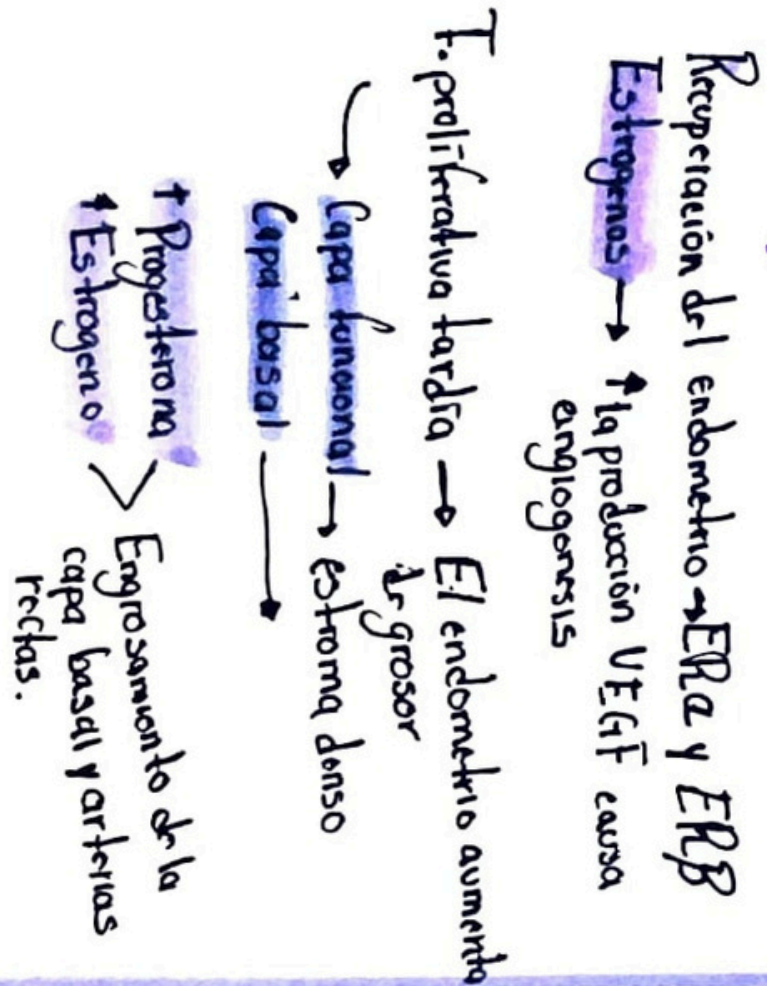 Recuperación del endometrio → ERα y ERβ
Estrogenos → ↑ la producción VEGF causa
angiogonesis
F. proliferativa tardía → El endometrio aumenta
de grosor
Capa funcional → estroma denso
Capa basal →
↑ Progesterona
↑ Estrogeno
> Engrosamiento de la
capa basal y arterias
rectas.